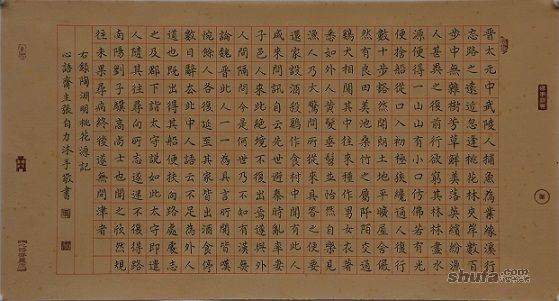 晉太元中武陵人捕魚為業緣溪行
忘路之遠近忽逢桃花林夾岸數百
步中無雜樹芳草鮮美落英繽紛漁
人甚異之復前行欲窮其林林盡水
源便得一山山有小口仿佛若有光
便捨船從口入初極狹纔通人復行
數十步豁然開朗土地平曠屋舍儼
然有良田美池桑竹之屬阡陌交通
雞犬相聞其中往來種作男女衣著
悉如外人黃髮垂髫並怡然自樂見
漁人乃大驚問所從來具答之便要
還家設酒殺雞作食村中聞有此人
咸來問訊自云先世避秦時亂率妻
子邑人來此絕境不復出焉遂與外
人間隔問今是何世乃不知有漢無
論魏晉此人一一為具言所聞皆嘆
惋餘人各復延至其家皆出酒食停
數日辭去此中人語云不足為外人
道也既出得其船便扶向路處處志
之及郡下詣太守說如此太守即遣
人隨其往尋向所志遂迷不復得路
南陽劉子驥高尚士也聞之欣然規
往未果尋病終後遂無問津者
右錄陶淵明桃花源記
心語齋主張自力沐手敬書
shufa.com